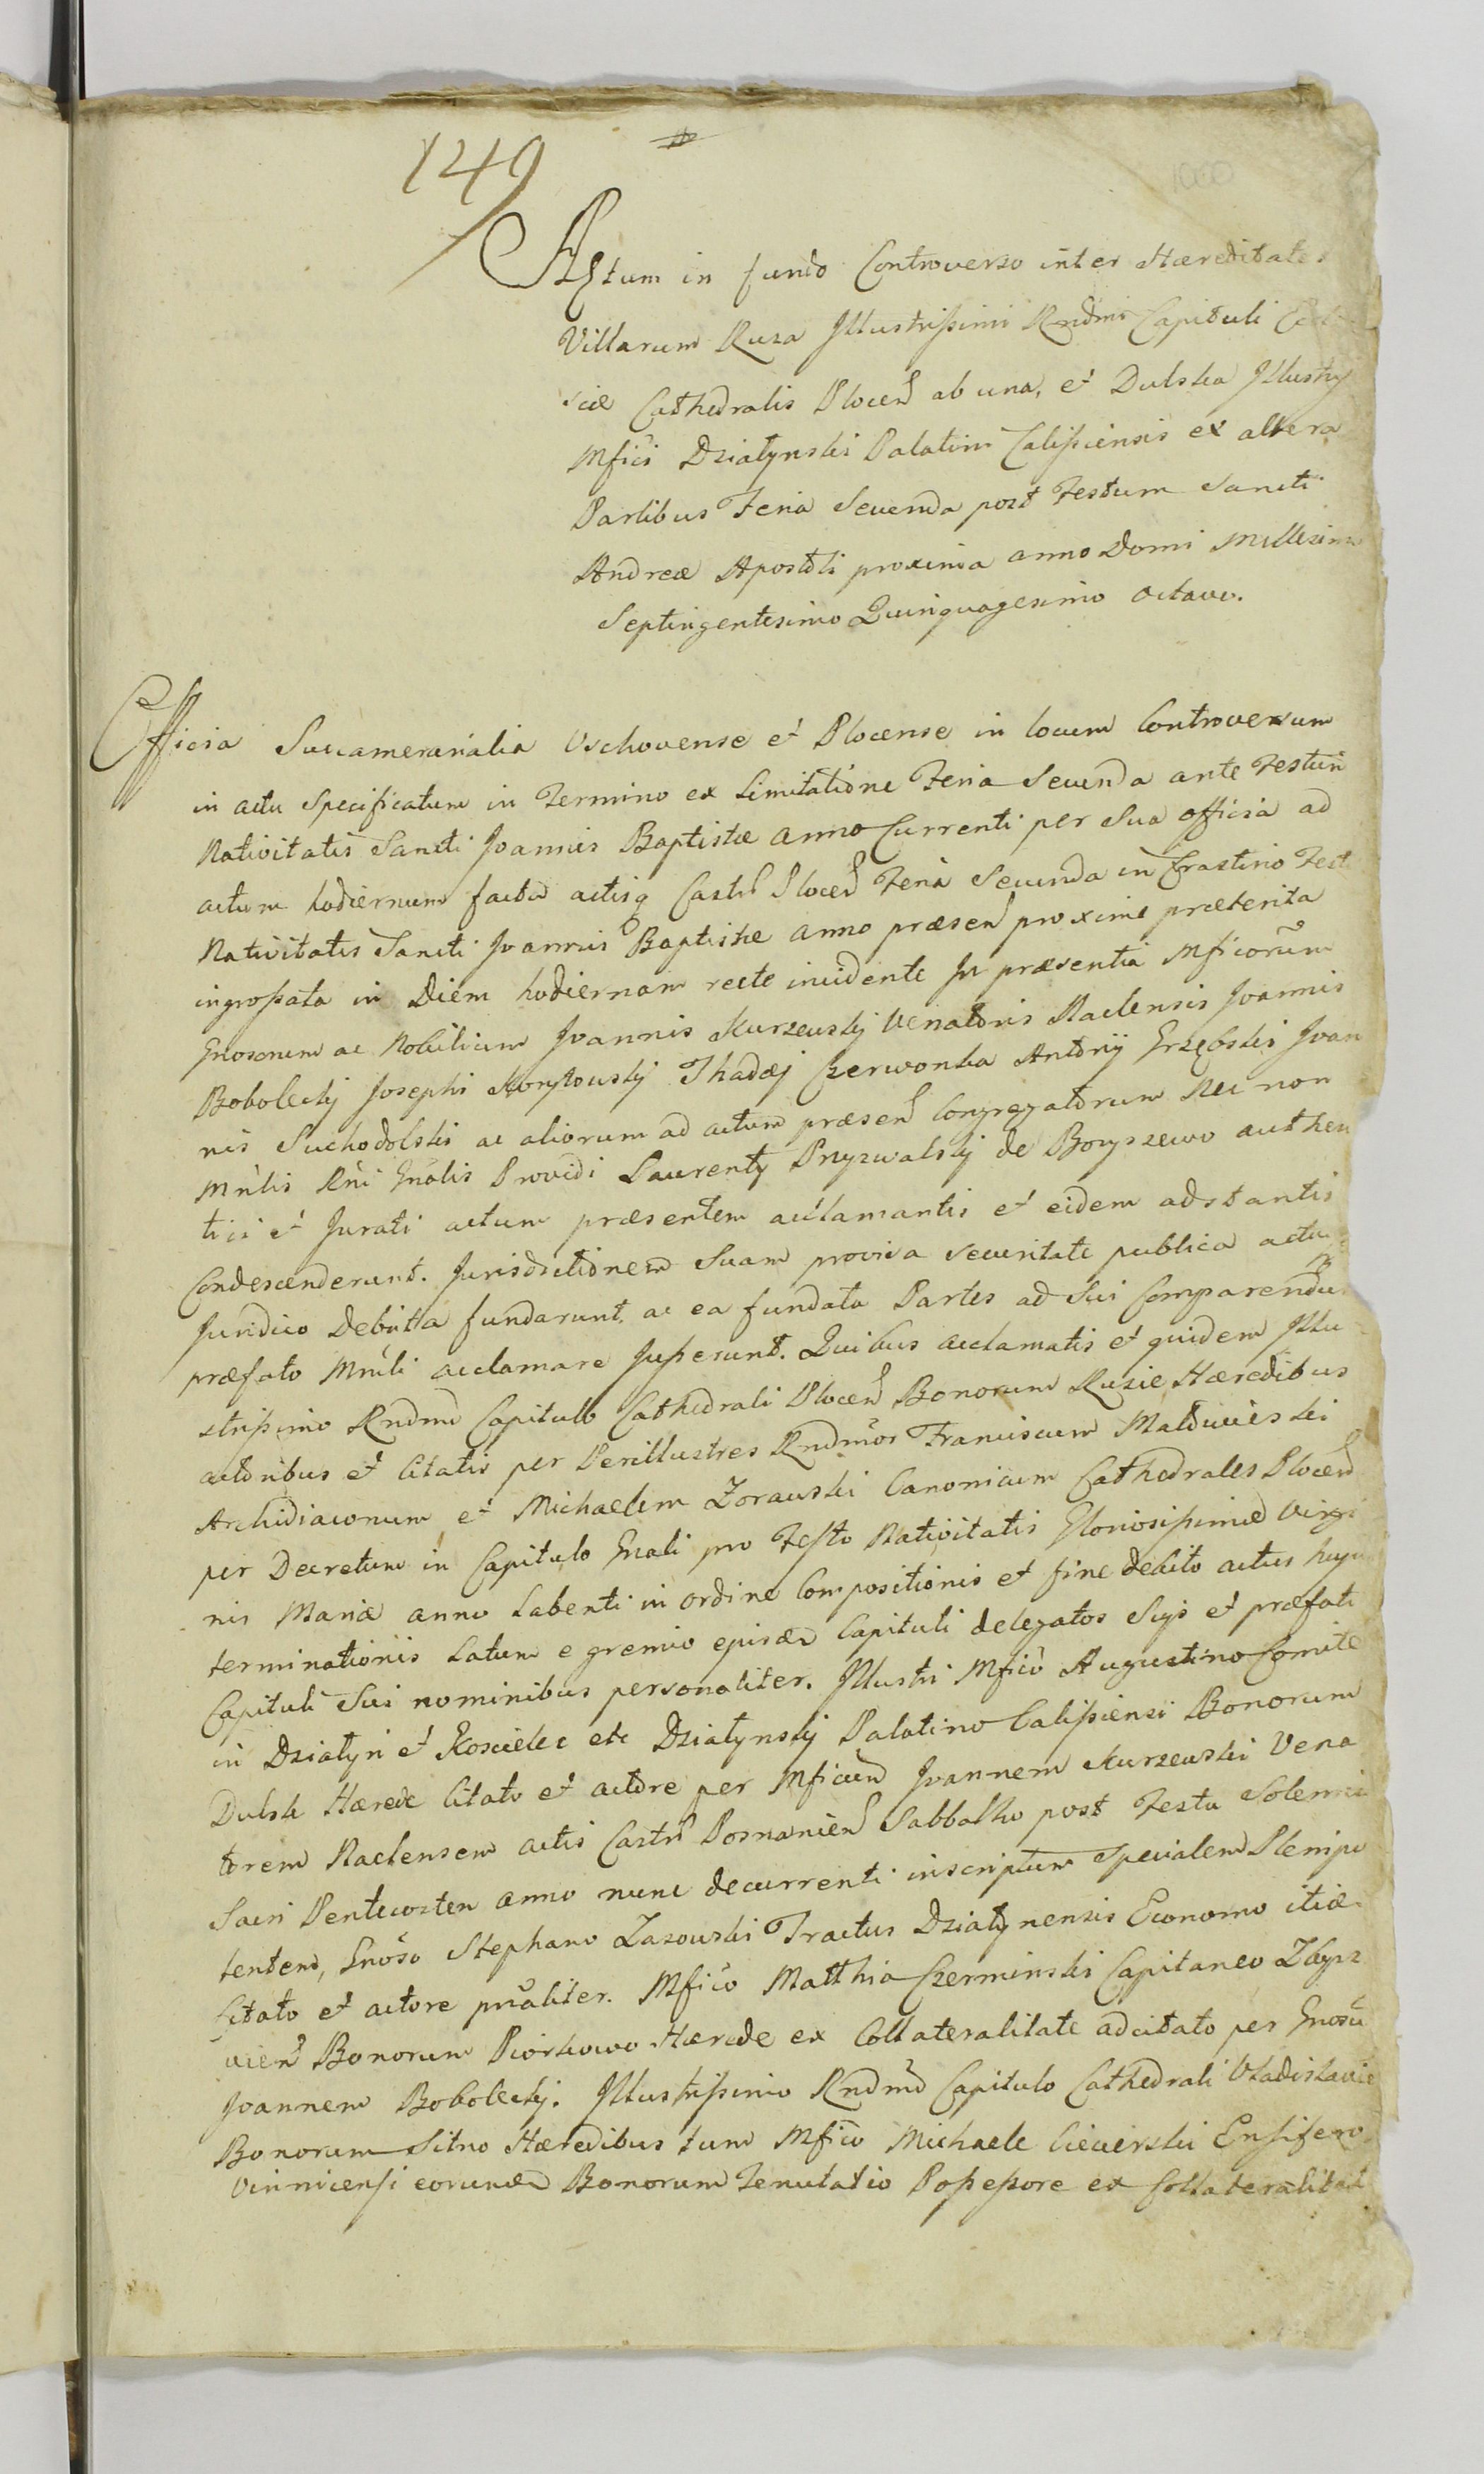 149
1000
Actum in fundo Controverso inter Hæreditates
Villarum Ruza Illustrissimi Rndmi Capituli Eccle
siæ Cathedralis Plocen ab una, et Dulska Illustris
Mfici Działynski Palatini Calissiensis ex altera
Partibus Feria Secunda post Festum Sancti
Andreæ Apostoli proxima anno Domi Millesimo
Septingentesimo Quinquagesimo octavo.
Officia Succameralia Vschovense et Plocense in locum Controversum
in actu Specificatum in Termino ex Limitatione Feria Secunda ante Festum
Nativitatis Sancti Joannis Baptistæ anno Currenti per Sua officia ad
actum hodiernum facta actisq Castr Plocen Feria Secunda in Crastino Festi
Nativitatis Sancti Joannis Baptistæ anno præsen proxime præterita
ingrossata in Diem hodiernam recte incidente In præsentia Mficorum
Gnosorum ac Nobilium Joannis Kurzewskÿ Venatoris Naclensis Joannis
Boboleckÿ Josephi Korytowskÿ Thadæj Czerwonka Antonÿ Grzębski Joan
nis Suchodolski ac aliorum ad actum præsen Congregatorum Nec non
Mnlis Rni Gnalis Providi Laurentÿ Przywalskÿ de Boryszewo authen
tici et Jurati actum præsentem acclamantis et eidem adstantis
Condescenderunt. Jurisdictionem Suam provisa securitate publica actui
Juridico Debitta fundarunt, ac ea fundata Partes ad Sui Comparendum
præfato Mnli acclamare Jusserunt. Quibus acclamatis et quidem Illu
strissimo Rndmo Capitulo Cathedrali Plocen Bonorum Ruzie Hæredibus
actoribus et Citatis per Perillustres Rndmos Franciscum Mathuieski
Archidiaconum et Michaelem Zorawski Canonicum Cathedrales Plocen
per Decretum in Capitulo Gnali pro Festo Nativitatis Gloriosissimæ Virgi
nis Mariæ anno Labenti in ordine Compositionis et fine debito actus hujus
terminationis Latum e gremio ejusdem Capituli delegatos Suis et præfati
Capituli Sui nominibus personaliter. Illustri Mfico Augustino Comite
in Działyn et Koscielec etc Działynskÿ Palatino Calissiensi Bonorum
Dulsk Hærede Citato et actore per Mficum Joannem Kurzewski Vena
torem Naclensem actis Castr Posnanien Sabbatho post Festa Solemnia
Sacri Pentecosten anno nunc decurrenti inscriptum Specialem Plenipo
tentem, Gnoso Stephano Zazowski Tractus Działynensis Economo itidem
Citato et actore pnaliter. Mfico Matthia Czerminski Capitaneo Zbysz
vien Bonorum Piorkowo Hærede ex Collateralitate adcitato per Gnosum
Joannem Boboleckÿ. Illustrissimo Rndmo Capitulo Cathedrali Vladislavie
Bonorum Sitno Hæredibus tum Mfico Michaele Cieverski Ensifero
Vinnicensi eorundem Bonorum Tenutario Possessore ex Collateralitate